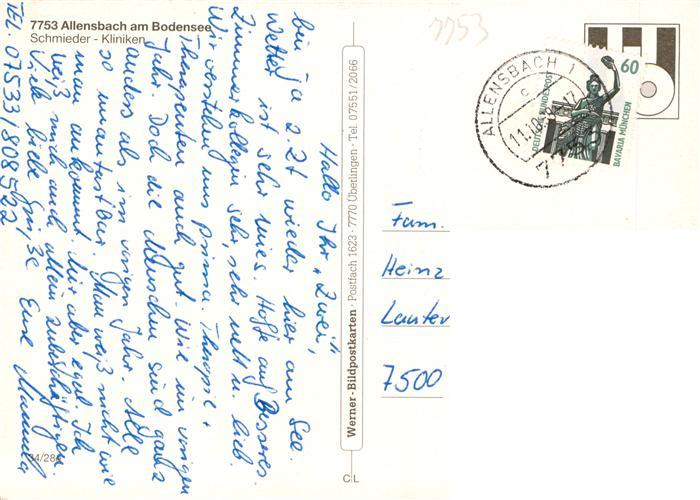 7753 Allensbach am Bodensee
Schmieder - Kliniken
7753
Hallo Ihr "Zwei",
bin ja z. Zt wieder hier am See.
Wetter ist sehr mies. Hoffe auf Besseres.
Zimmerkollegin sehr, sehr nett u. lieb.
Wir verstehen uns Prima. Therapie +
Therapeuten auch gut. Wie im vorigen
Jahr. Doch die Menschen sind ganz
anders als im vorigen Jahr. Alle
so unnahbar. Man weiß nicht wie
man ankommt. Mir aber egal. Ich
weiß mich auch allein zu beschäftigen.
Viele liebe Grüße Eure Manuela
TEL. 07533/808522
34/284
Werner-Bildpostkarten · Postfach 1623 · 7770 Überlingen · Tel. 07551/2066
CL
ALLENSBACH 1
c
7753
60
DEUTSCHE BUNDESPOST
BAVARIA MÜNCHEN
Fam.
Heinz
Lauter
7500